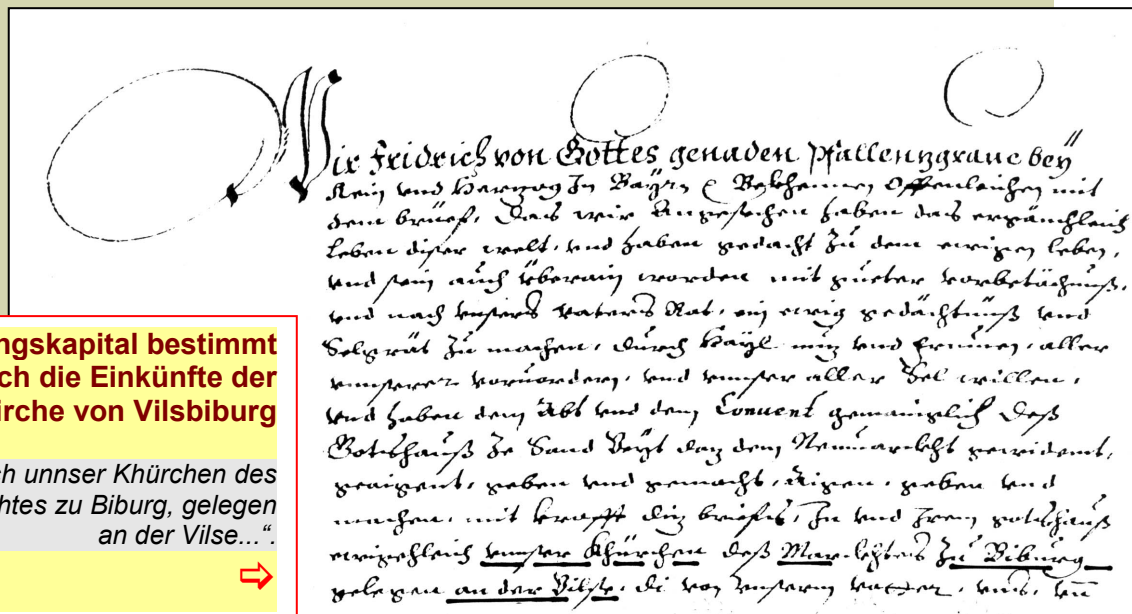 Wir Fridrich von Gottes genaden Pfallenngraue bey
Rein vnd Herzog In Bayrn Bekhennen Offenleichen mit
dem brieef, Das wir Angesechen haben das ergänchleich
leben diser welt, vnd haben gedacht Zu dem ewigen leben,
vnd sein auch vberain worden mit gueter vorbetächnuß,
vnd nach vnsers vaters Rat, ein ewig gedächtnuß vnd
Selgrät Zu machen, durch Hayl nuz vnd frumen, aller
vnnserer voruordern, vnd vnnser aller Sel willen,
vnd haben dem Abt vnd dem Conuent gemainglich Deß
Gotshauß Ze Sand Veyt daz dem Neumarckht gewidemt,
geaigent, geben vnd gemacht, Aigen, geben vnd
machen, mit krafft diz briefs, In vnd Irem gotshauß
ewigchleich vnnser Khürchen deß Marckhtes Zu Biburg
gelegen an der Vilse, di von vnserm vatter, vnns, vnd
ngskapital bestimmt
ch die Einkünfte der
irche von Vilsbiburg
ch unnser Khürchen des
htes zu Biburg, gelegen
an der Vilse...“.
⇨